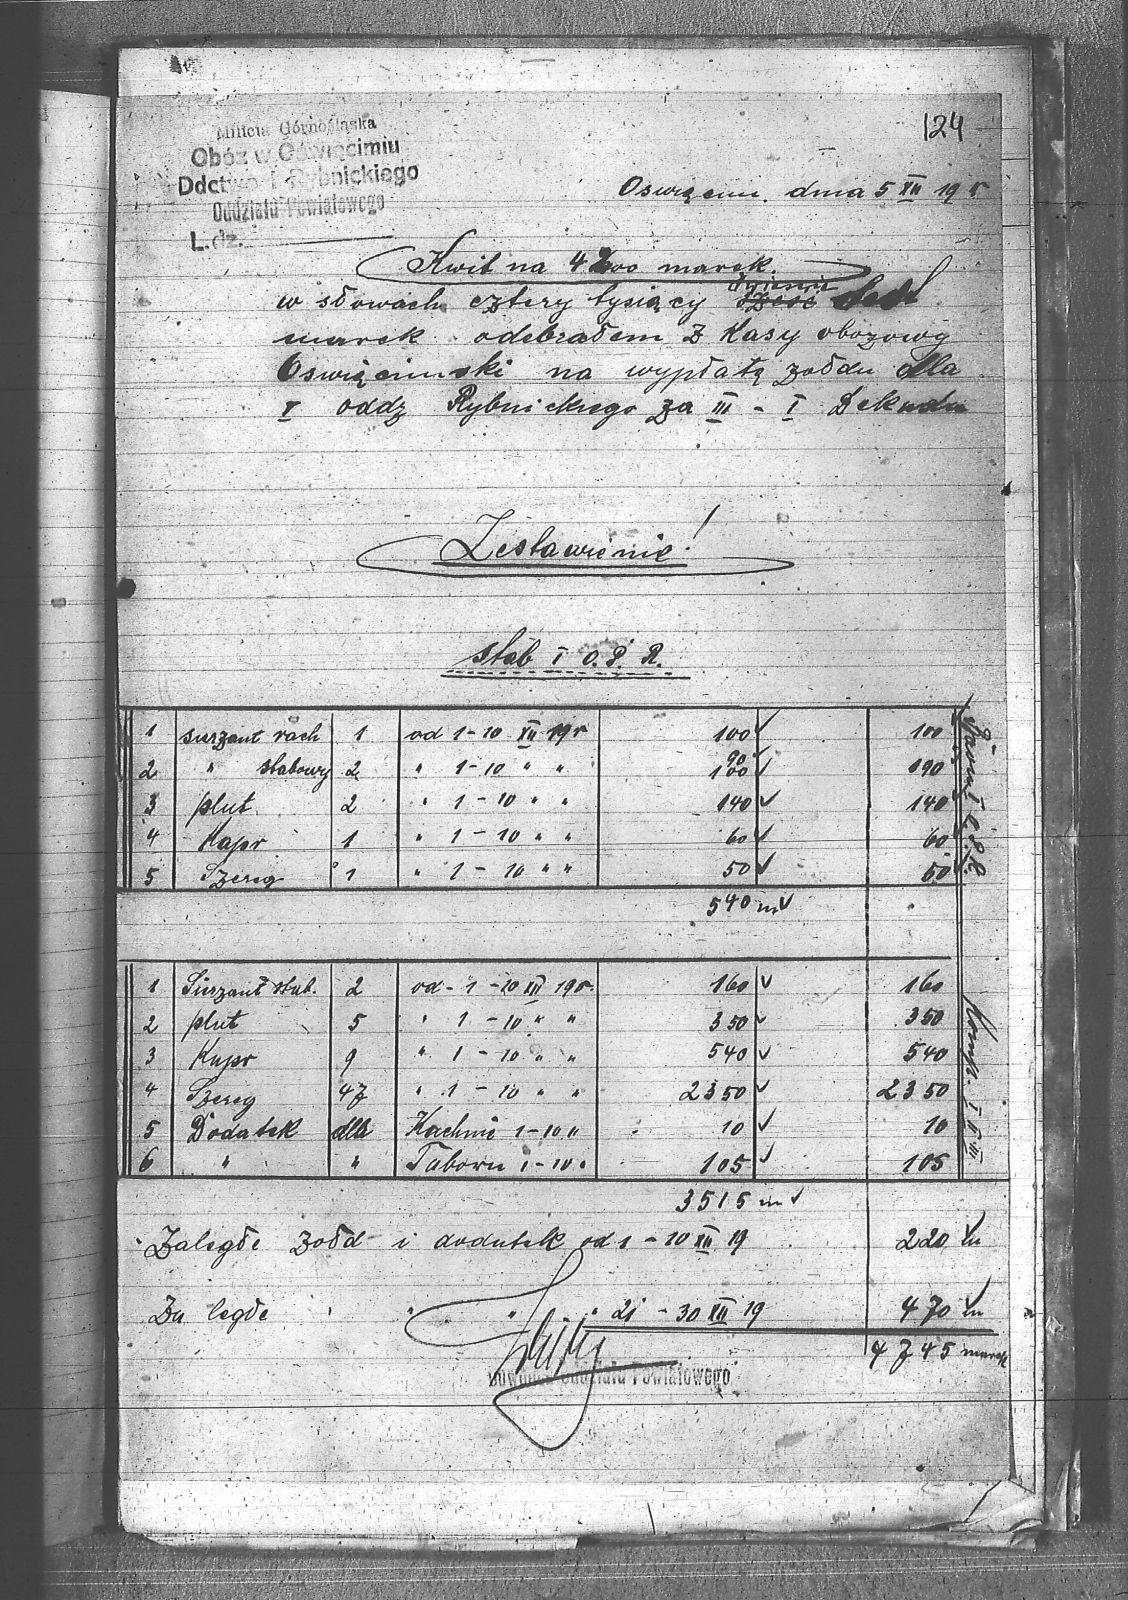 124
Milicja Górnośląska
Obóz w Oświęcimiu
Ddctwo I Rybnickiego
Oddziału Powiatowego
L. dz.
Oswięcim. dnia 5 XII 19 r
Kwit na 4700 marek.
w słowach cztery tysięcy
marek odebrałem z Kasy obozowy
Oswięcimski na wypłatę żołdu dla
I oddz Rybnickiego za III - I Dekadu
Zestawienie!
Stab I O. P. R.
1 surzant rach 1 od 1-10 XII 19 r 100 100
2 " stabowy 2 " 1-10 " " 90 100 190
3 plut. 2 " 1-10 " " 140 140
4 Kapr 1 " 1-10 " " 60 60
5 Szereg 1 " 1-10 " " 50 50
540 m
I O.P.R.
1 Surzant stab. 2 od - 1-10 XII 19 r. 160 160
2 plut 5 " 1-10 " " 350 350
3 Kapr 9 " 1-10 " " 540 540
4 Szereg 47 " 1-10 " " 2350 2350
5 Dodatek dla Kuchnie 1-10 " 10 10
6 " " Taboru 1-10 " 105 105
Komp. I II III
3515 m
Zaległe żołd i dodatek od 1-10 XII 19 220 m
Za ległe " " " 21-30 XII 19 470 m
4745 marek
Oddziału Powiatowego